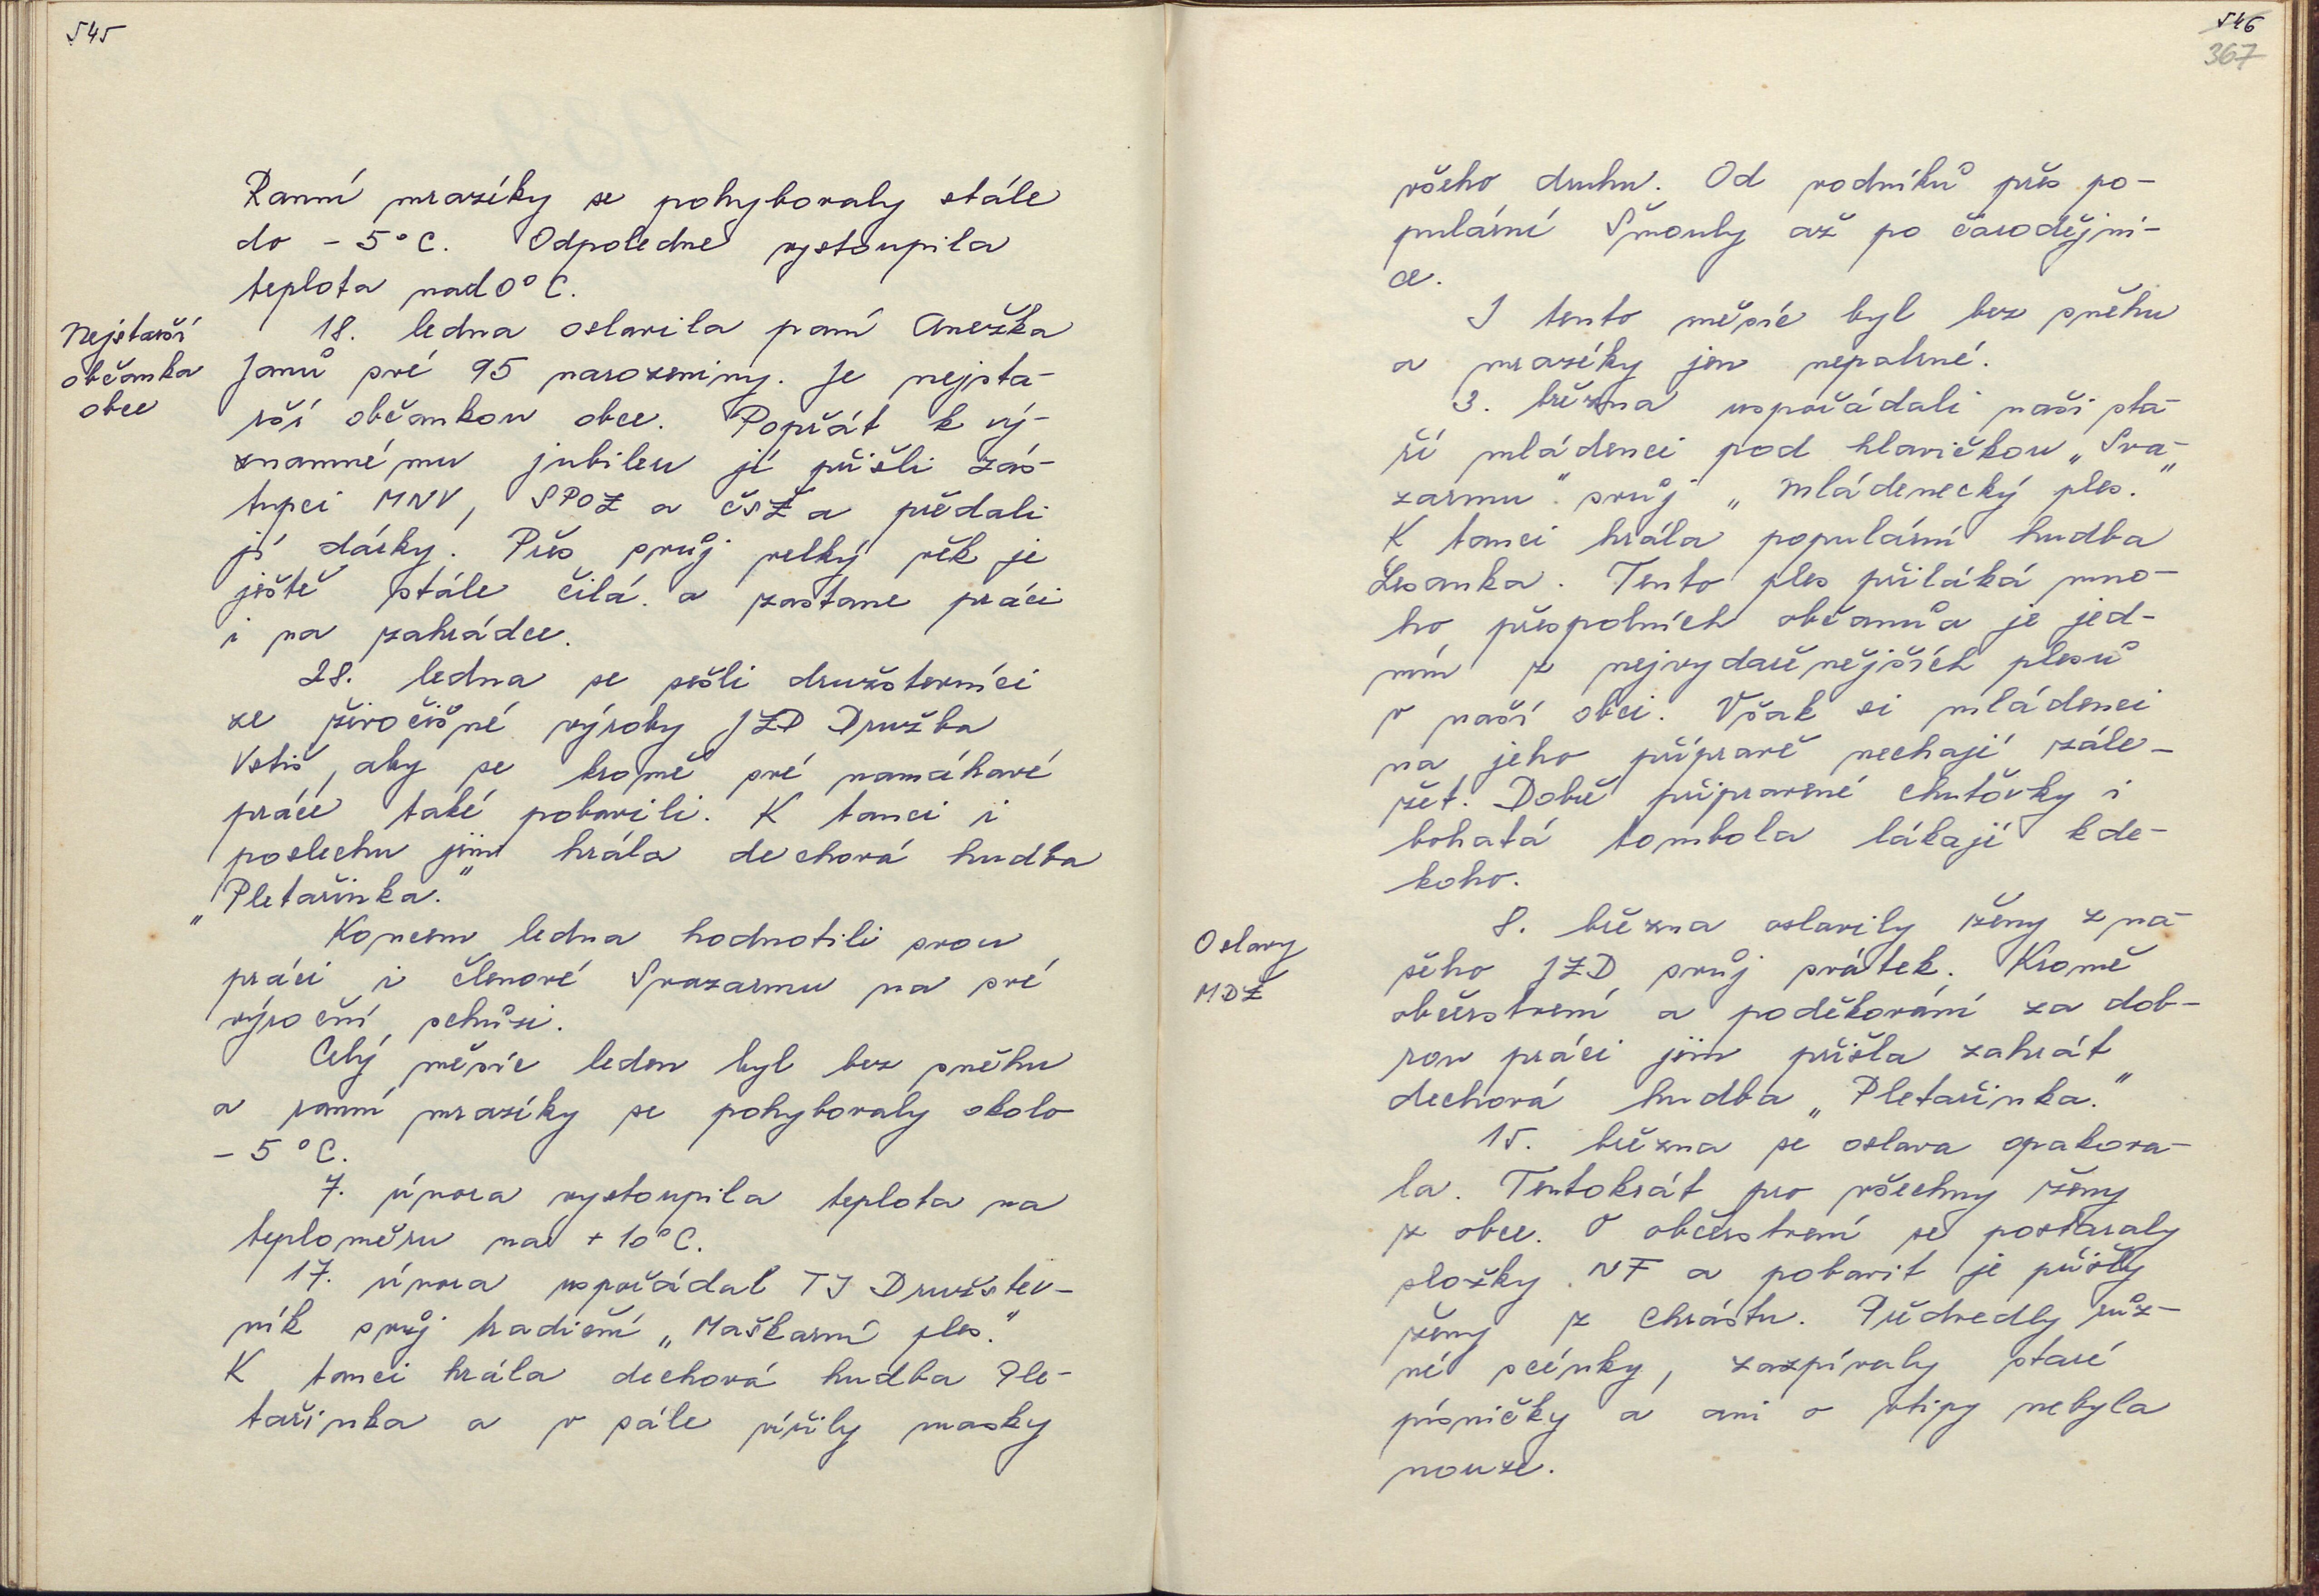 545
Ranní mrazíky se pohybovaly stále
do - 5°C. Odpoledne vystoupila
teplota nad 0°C.
Nejstarší
občanka
obce
18. ledna oslavila paní Anežka
Janů své 95 narozeniny. Je nejsta-
rší občankou obce. Popřát k vý-
znamnému jubileu jí přišli zás-
tupci MNV, SPOZ a ČSŽ a předali
jí dárky. Přes svůj velký věk je
ještě stále čilá a zastane práci
i na zahrádce.
28. ledna se sešli družstevníci
ze živočišné výroby JZD Družba
Vstiš, aby se kromě své namáhavé
práce také pobavili. K tanci i
poslechu jim hrála dechová hudba
„Pletařinka.“
Koncem ledna hodnotili svou
práci i členové Svazarmu na své
výroční schůzi.
Celý měsíc leden byl bez sněhu
a ranní mrazíky se pohybovaly okolo
- 5°C.
7. února vystoupila teplota na
teploměru na + 10°C.
17. února uspořádal TJ Družstev-
ník svůj tradiční „Maškarní ples.“
K tanci hrála dechová hudba Ple-
tařinka a v sále vířily masky
546
367
všeho druhu. Od vodníků přes po-
pulární Šmouly až po čarodějni-
ce.
I tento měsíc byl bez sněhu
a mrazíky jen nepatrné.
3. března uspořádali naši sta-
ří mládenci pod hlavičkou „Sva-
zarmu“ svůj „Mládenecký ples.“
K tanci hrála populární hudba
Lesanka. Tento ples přiláká mno-
ho přespolních občanů a je jed-
ním z nejvydařenějších plesů
v naší obci. Však si mládenci
na jeho přípravě nechají zále-
žet. Dobře připravené chuťovky i
bohatá tombola lákají kde-
koho.
Oslavy
MDŽ
8. března oslavily ženy z na-
šeho JZD svůj svátek. Kromě
občerstvení a poděkování za dob-
rou práci jim přišla zahrát
dechová hudba „Pletařinka.“
15. března se oslava opakova-
la. Tentokrát pro všechny ženy
z obce. O občerstvení se postaraly
složky NF a pobavit je přišly
ženy z Chrástu. Předvedly růz-
né scénky, zazpívaly staré
písničky a ani o vtipy nebyla
nouze.